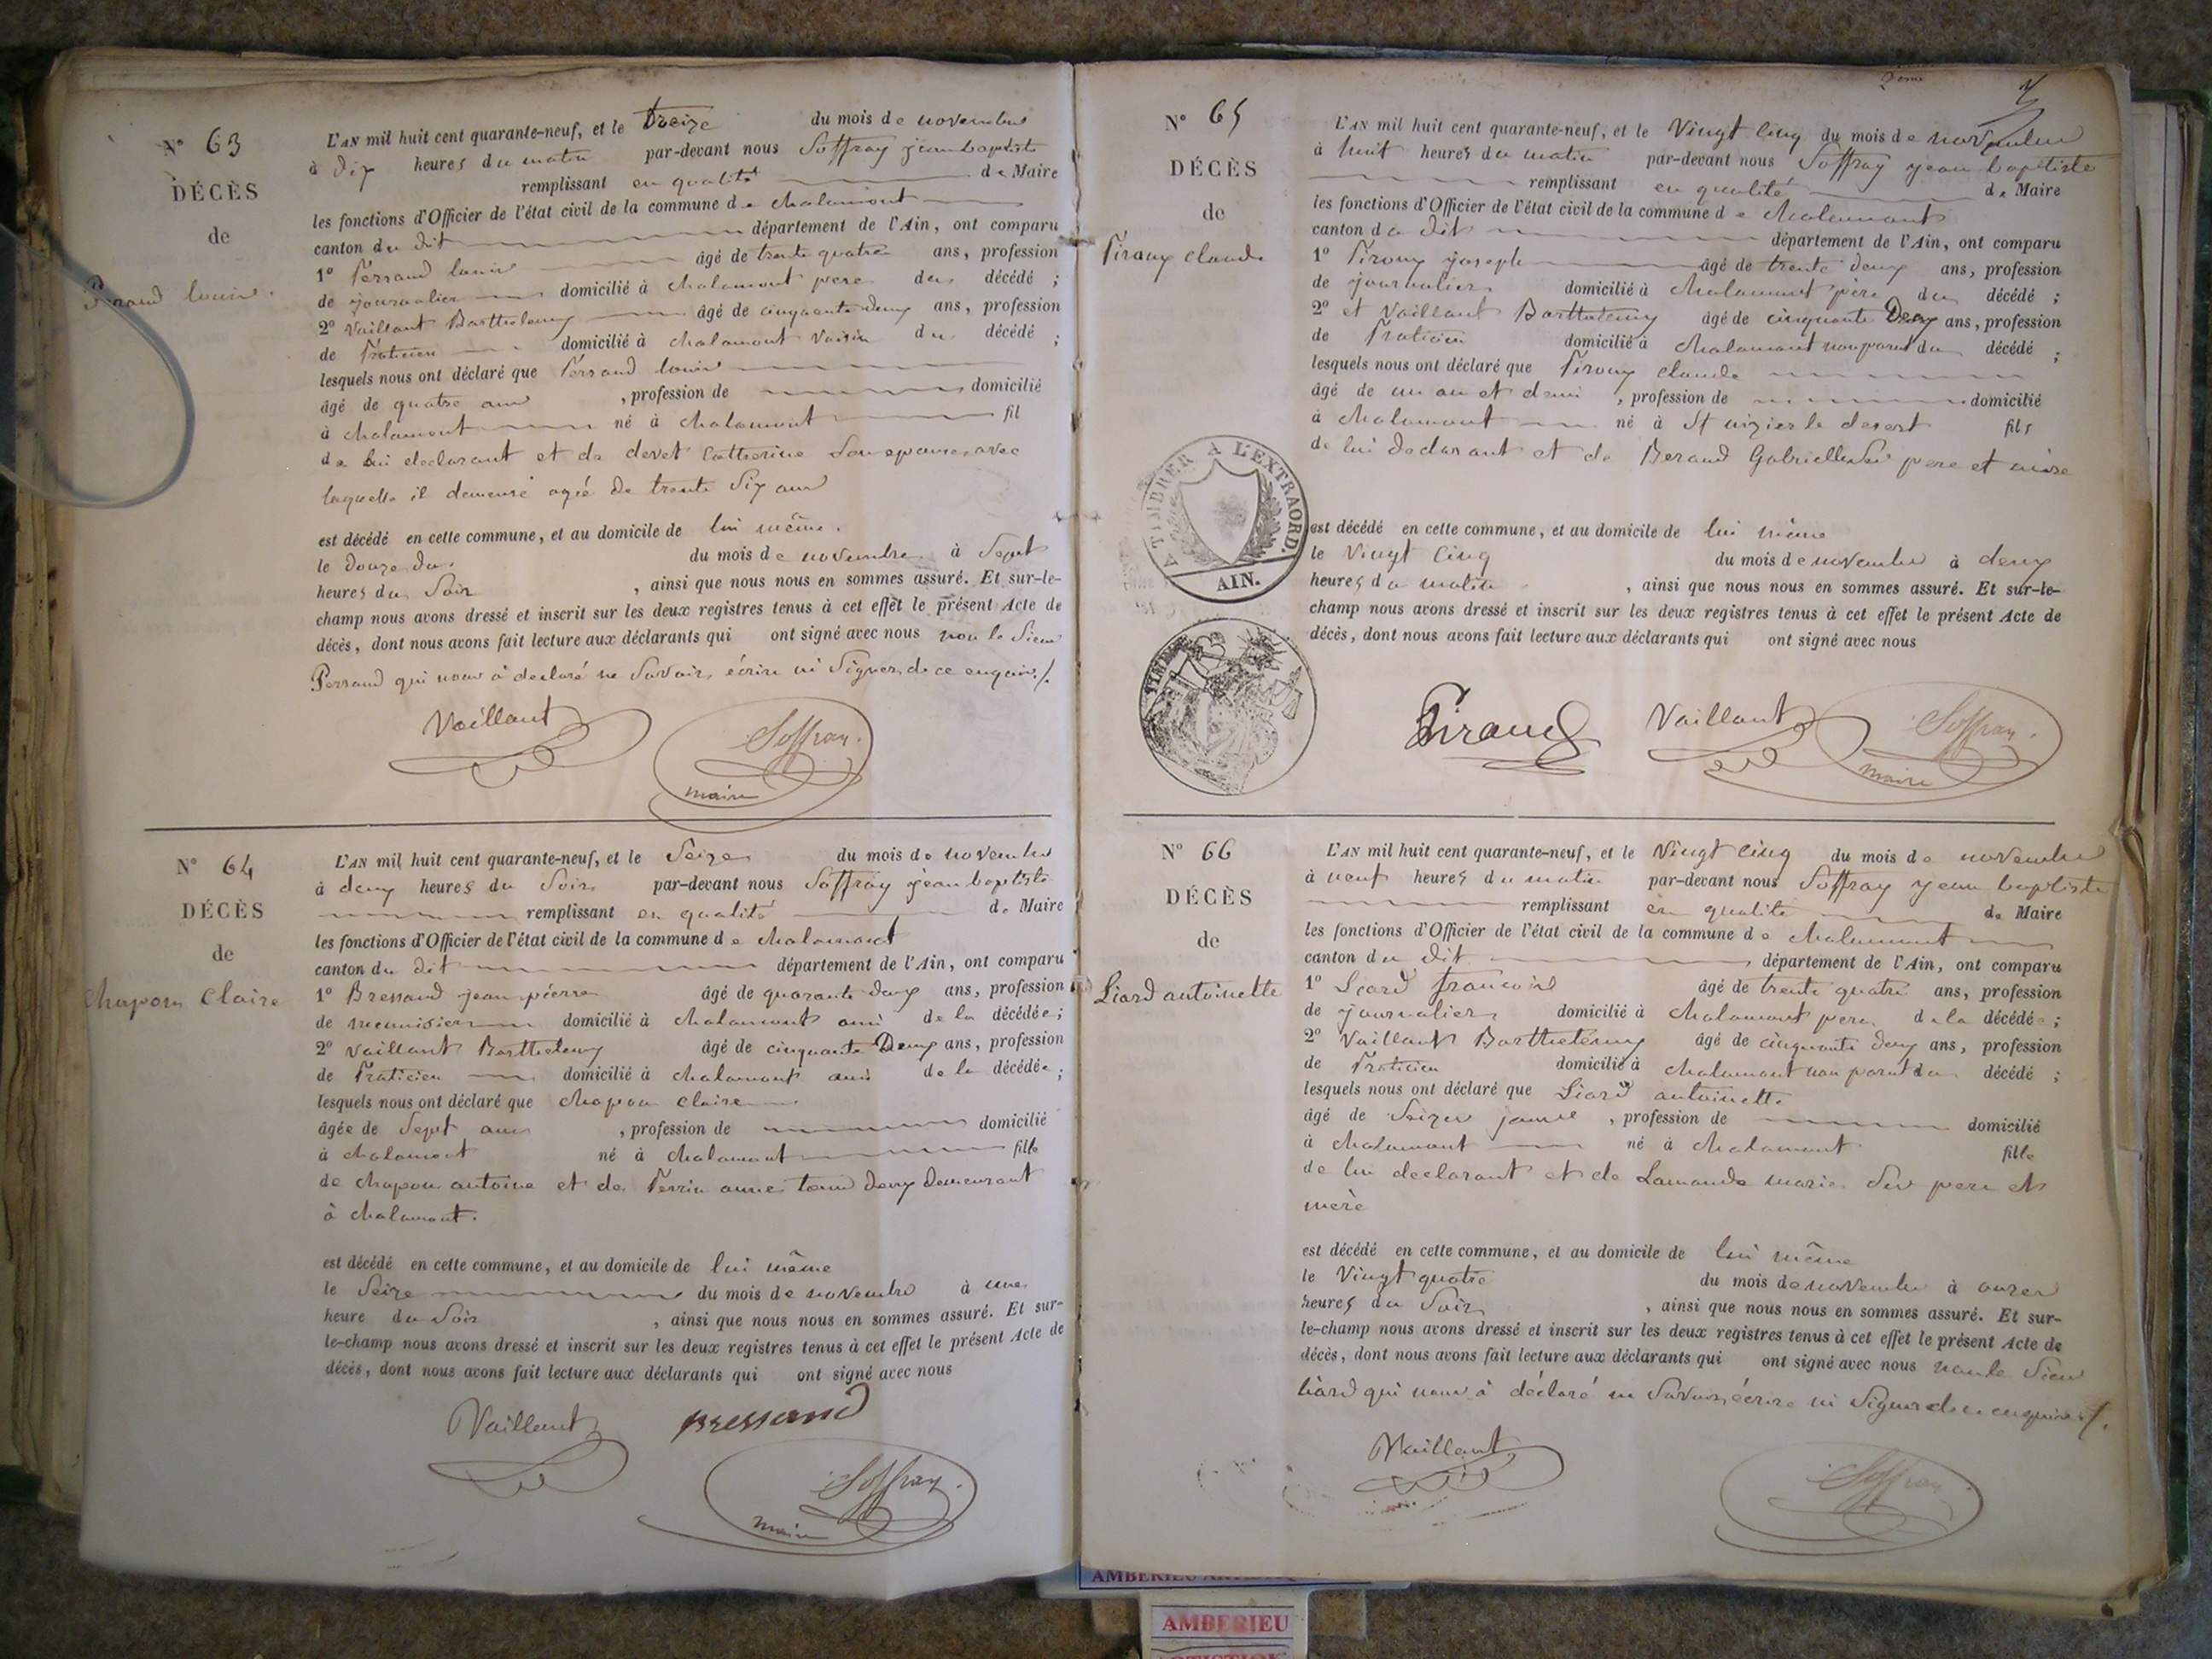 N° 63
DÉCÈS
de
Perrand louis.
L'AN mil huit cent quarante-neuf, et le treize du mois de novembre
à dix heures du matin par-devant nous Soffray jean baptiste
remplissant en qualité de Maire
les fonctions d'Officier de l'état civil de la commune de chalamont
canton du dit département de l'Ain, ont comparu
1° Perrand louis âgé de trente quatre ans, profession
de journalier domicilié à chalamont pere du décédé ;
2° Vaillant Barthelemy âgé de cinquante deux ans, profession
de Praticien domicilié à chalamont Voisin du décédé ;
lesquels nous ont déclaré que Perrand louis
âgé de quatre ans , profession de domicilié
à chalamont né à chalamont fil
de lui declarant et de devet Catherine Son epouse, avec
laquelle il demeure agée de trente Six ans
est décédé en cette commune, et au domicile de lui même.
le douze du du mois de novembre à Sept
heures du Soir , ainsi que nous nous en sommes assuré. Et sur-le-
champ nous avons dressé et inscrit sur les deux registres tenus à cet effet le présent Acte de
décès, dont nous avons fait lecture aux déclarants qui ont signé avec nous non le Sieur
Perrand qui nous à declaré ne Savoir écrire ni Signer de ce enquis ./.
Vaillant Soffray.
maire
N° 64
DÉCÈS
de
Chapon Claire
L'AN mil huit cent quarante-neuf, et le Seize du mois de novembre
à deux heures du Soir par-devant nous Soffray jean baptiste
remplissant en qualité de Maire
les fonctions d'Officier de l'état civil de la commune de chalamont
canton du dit département de l'Ain, ont comparu
1° Bressand jean pierre âgé de quarante deux ans, profession
de menuisier domicilié à chalamont ami de la décédée ;
2° Vaillant Barthelemy âgé de cinquante Deux ans, profession
de Praticien domicilié à chalamont ami de la décédée ;
lesquels nous ont déclaré que chapon Claire
âgée de Sept ans , profession de domicilié
à chalamont né à chalamont fille
de chapon antoine et de Perrin anne tous deux demeurant
à chalamont.
est décédé en cette commune, et au domicile de lui même
le Seize du mois de novembre à une
heure du Soir , ainsi que nous nous en sommes assuré. Et sur-
le-champ nous avons dressé et inscrit sur les deux registres tenus à cet effet le présent Acte de
décès, dont nous avons fait lecture aux déclarants qui ont signé avec nous
Vaillant Bressand
Soffray.
maire
N° 65
DÉCÈS
de
Piroux claude
L'AN mil huit cent quarante-neuf, et le Vingt Cinq du mois de novembre
à huit heures du matin par-devant nous Soffray jean baptiste
remplissant en qualité de Maire
les fonctions d'Officier de l'état civil de la commune de chalamont
canton du dit département de l'Ain, ont comparu
1° Piroux joseph âgé de trente deux ans, profession
de journalier domicilié à chalamont père du décédé ;
2° et Vaillant Barthelemy âgé de cinquante Deux ans, profession
de Praticien domicilié à chalamont non parent du décédé ;
lesquels nous ont déclaré que Piroux claude
âgé de un an et demi , profession de domicilié
à chalamont né à St nizier le desert fils
de lui declarant et de Beraud Gabrielle Ses pere et mère
est décédé en cette commune, et au domicile de lui même
le Vingt Cinq du mois de novembre à deux
heures du matin , ainsi que nous nous en sommes assuré. Et sur-le-
champ nous avons dressé et inscrit sur les deux registres tenus à cet effet le présent Acte de
décès, dont nous avons fait lecture aux déclarants qui ont signé avec nous
A TIMBRER A L'EXTRAORD.
AIN.
Vaillant Soffray.
maire
N° 66
DÉCÈS
de
Liard antoinette
L'AN mil huit cent quarante-neuf, et le Vingt Cinq du mois de novembre
à neuf heures du matin par-devant nous Soffray jean baptiste
remplissant en qualité de Maire
les fonctions d'Officier de l'état civil de la commune de chalamont
canton du dit département de l'Ain, ont comparu
1° Liard francois âgé de trente quatre ans, profession
de journalier domicilié à chalamont pere de la décédée ;
2° Vaillant Barthelemy âgé de cinquante deux ans, profession
de Praticien domicilié à chalamont non parent du décédé ;
lesquels nous ont déclaré que Liard antoinette
âgé de Seize jours , profession de domicilié
à chalamont né à chalamont fille
de lui declarant et de Lamande marie Ses pere et
mère
est décédé en cette commune, et au domicile de lui même
le Vingt quatre du mois de novembre à onze
heures du Soir , ainsi que nous nous en sommes assuré. Et sur-
le-champ nous avons dressé et inscrit sur les deux registres tenus à cet effet le présent Acte de
décès, dont nous avons fait lecture aux déclarants qui ont signé avec nous non le Sieur
Liard qui nous à déclaré ne Savoir écrire ni Signer de ce enquis ./.
Vaillant Soffray
AMBERIEU